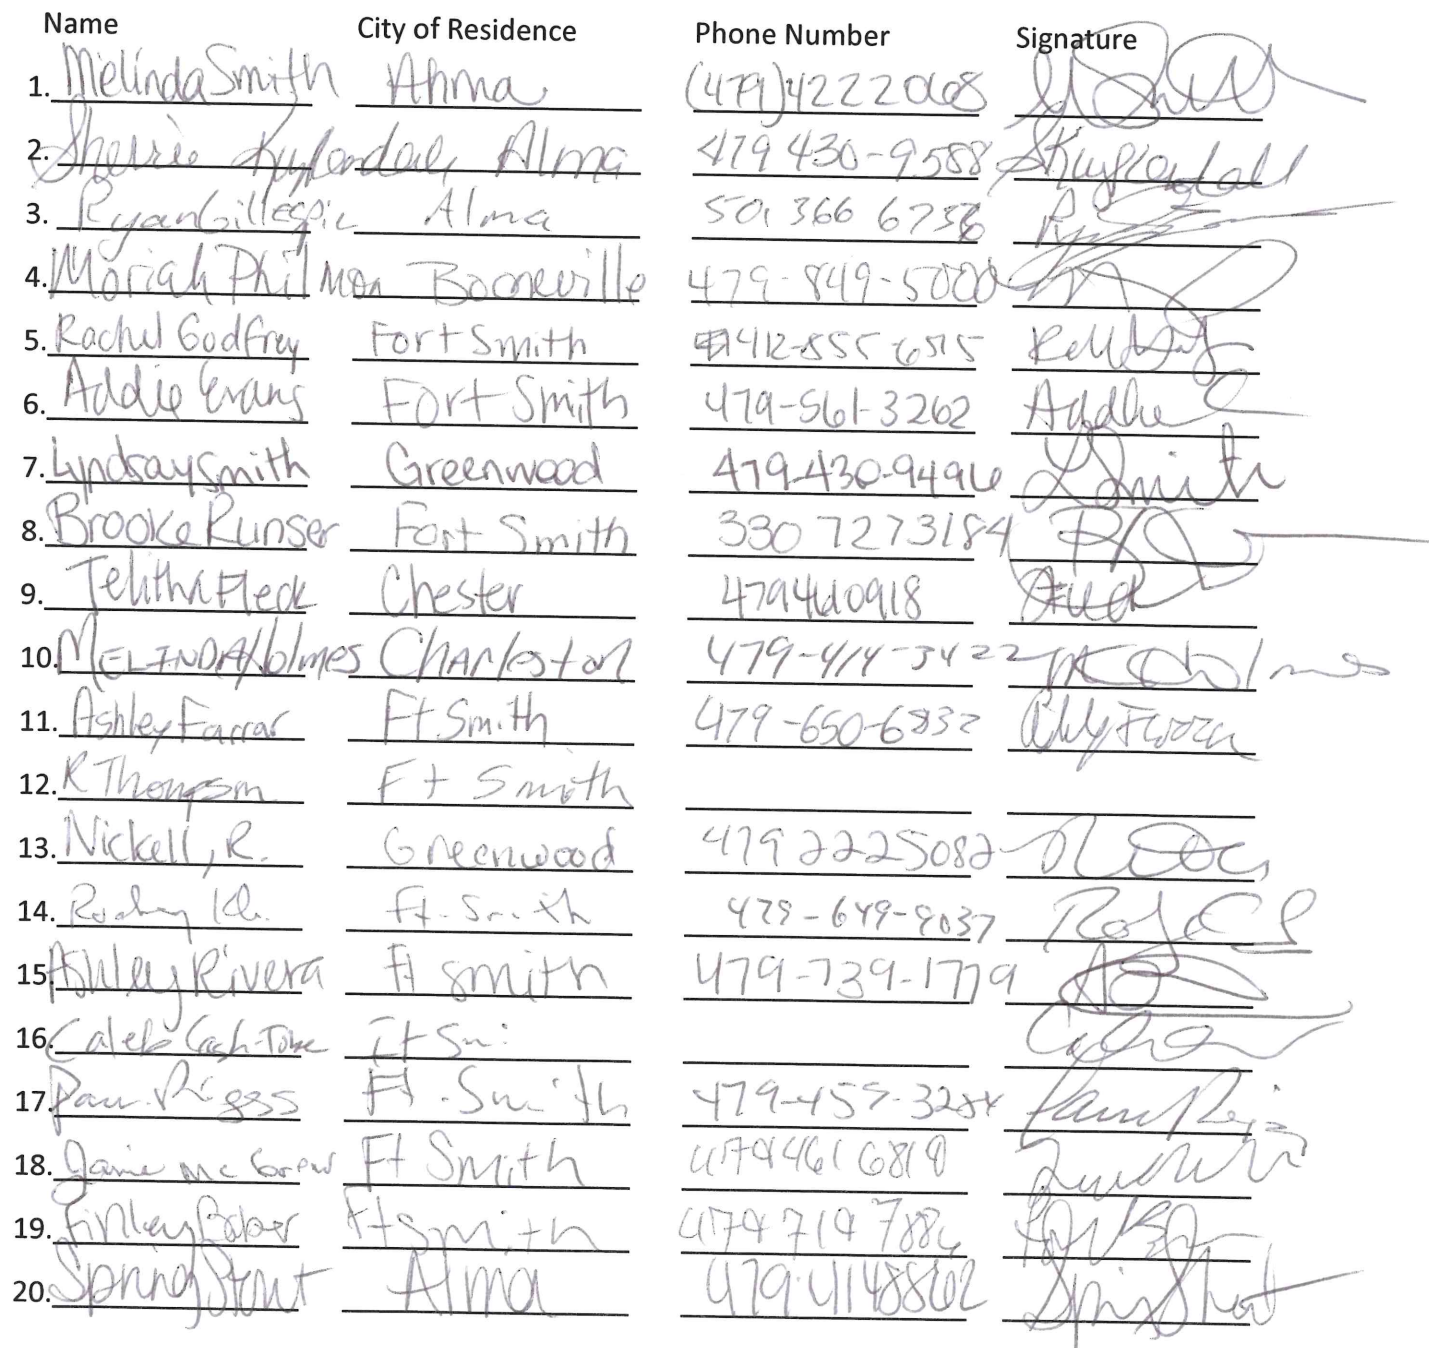 Name City of Residence Phone Number Signature
1. Melinda Smith Ahma (479)4222068
2. Sherrie Kuykendall Alma 479 430-9588 SKuykendall
3. Ryan Gillespie Alma 501 366 6736
4. Moriah Philmon Booneville 479-849-5000
5. Rachel Godfrey Fort Smith 412-855-6515
6. Addie Evans Fort Smith 479-561-3262 Addie
7. Lyndsay Smith Greenwood 479-430-9496 LSmith
8. Brooke Runser Fort Smith 330 7273184
9. Telitha Fleck Chester 4794610918
10. MELINDA Holmes CHArleston 479-414-3422
11. Ashley Farrar Ft Smith 479-650-6832
12. R Thompson Ft Smith
13. Nickell, R. Greenwood 479 2225082
14. Rodney Ft. Smith 479-649-9037
15. Ashley Rivera Ft Smith 479-739-1779
16. Caleb Cash-Tobe
17. Riggs Ft. Smith
18. Jamie McGrew Ft Smith 4794616819
19. Finley Baber Ft Smith
20. Spring Stout Alma 479 4148862 Spring Stout